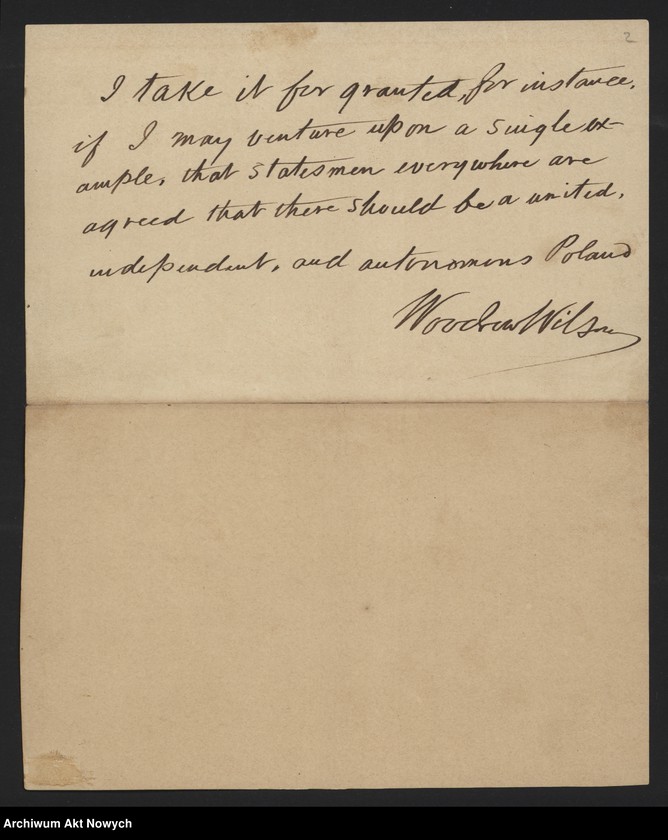 2
I take it for granted, for instance,
if I may venture upon a single ex-
ample, that statesmen everywhere are
agreed that there should be a united,
independent, and autonomous Poland
Woodrow Wilson
Archiwum Akt Nowych